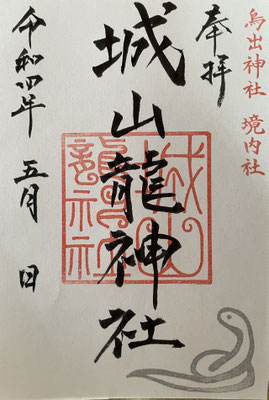 鳥出神社 境内社
奉拝
城山龍神社
城山龍神社
令和四年 五月 日